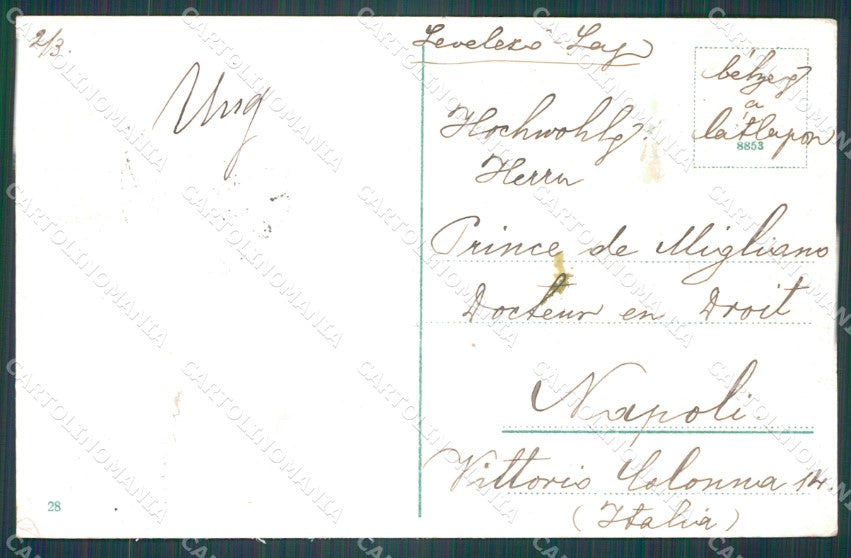 2/3.
Ung
Levelező Lap
bélyeg
a
látlapon
8853
Hochwohlg.
Herrn
Prince de Migliano
Docteur en Droit
Napoli
Vittoria Colonna 14.
(Italia)
28
CARTOLINOMANIA